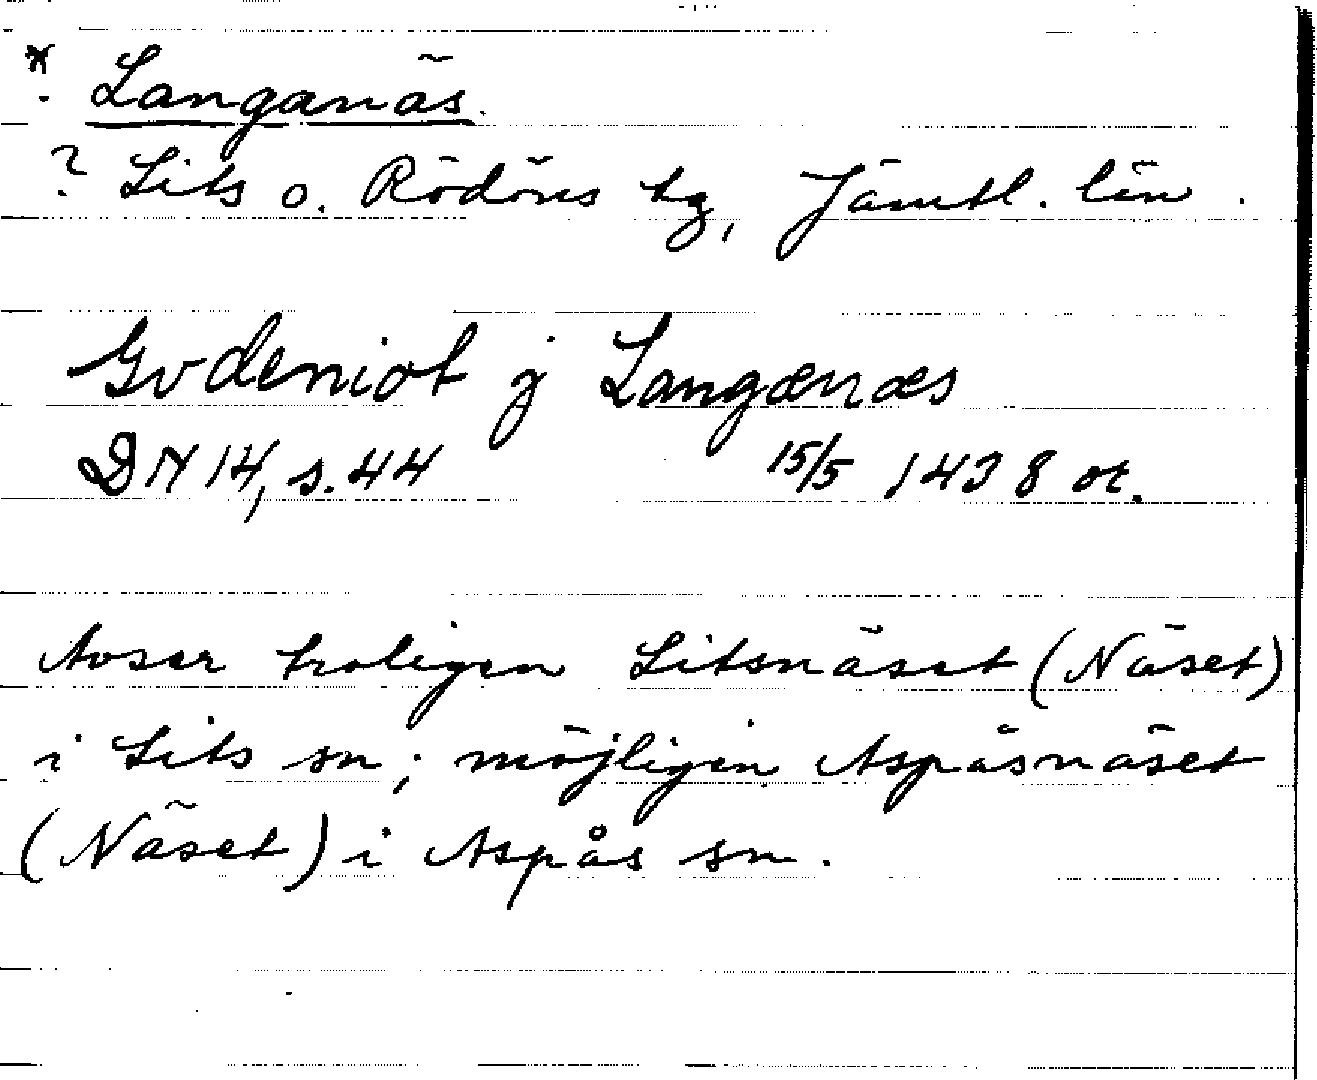 * Langanäs.
? Lits o. Rödöns tg, Jämtl. län.
Gvdeniot j Langænæs
DN 14, s. 44 15/5 1438 or.
Avser troligen Litsnäset (Näset)
i Lits sn; möjligen Aspåsnäset
(Näset) i Aspås sn.